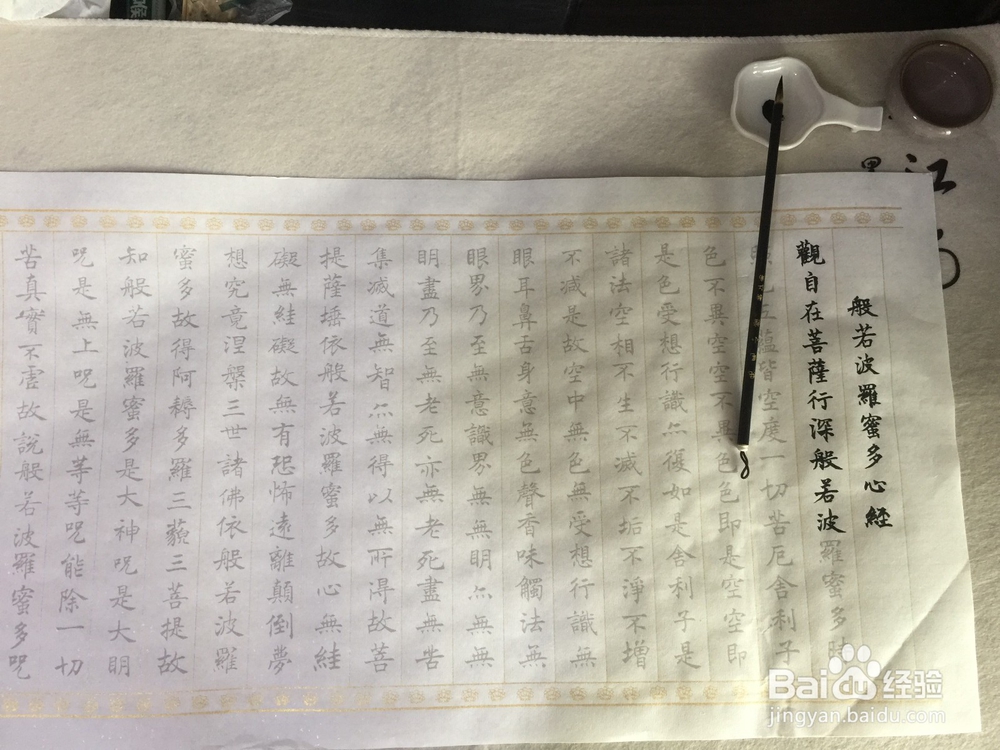 般若波羅蜜多心經
觀自在菩薩行深般若波羅蜜多時
五蘊皆空度一切苦厄舍利子
色不異空空不異色色即是空空即
是色受想行識亦復如是舍利子是
諸法空相不生不滅不垢不淨不增
不減是故空中無色無受想行識無
眼耳鼻舌身意無色聲香味觸法無
眼界乃至無意識界無無明亦無無
明盡乃至無老死亦無老死盡無苦
集滅道無智亦無得以無所得故菩
提薩埵依般若波羅蜜多故心無絓
礙無絓礙故無有恐怖遠離顛倒夢
想究竟涅槃三世諸佛依般若波羅
蜜多故得阿耨多羅三藐三菩提故
知般若波羅蜜多是大神咒是大明
咒是無上咒是無等等咒能除一切
苦真實不虛故說般若波羅蜜多咒
江
Baidu经验
jingyan.baidu.com